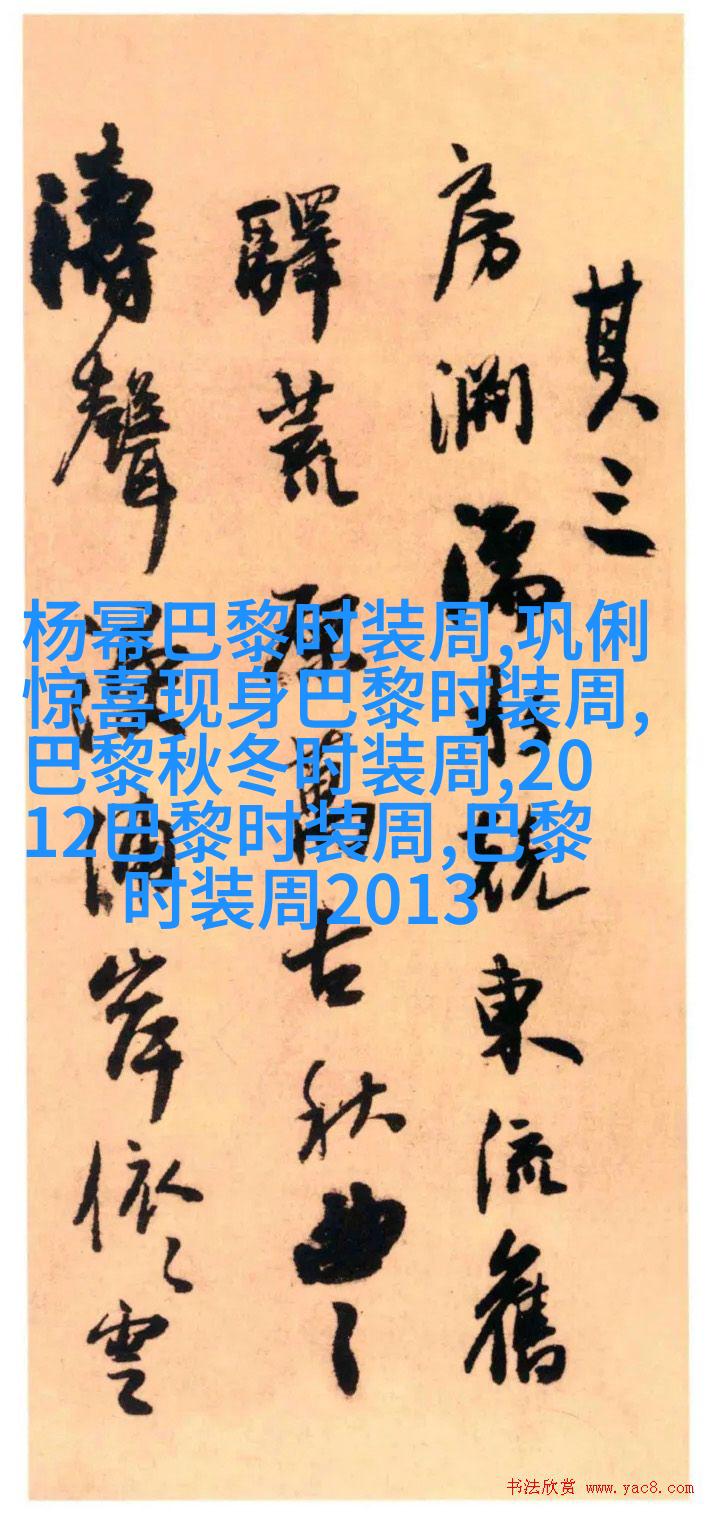 其三
房東流舊
驛荒原萬古秋曲〻
濤聲岸依〻雲
杨幂巴黎时装周,巩俐
惊喜现身巴黎时装周,
巴黎秋冬时装周,20
12巴黎时装周,巴黎
时装周2013
书法欣赏 www.yac8.com